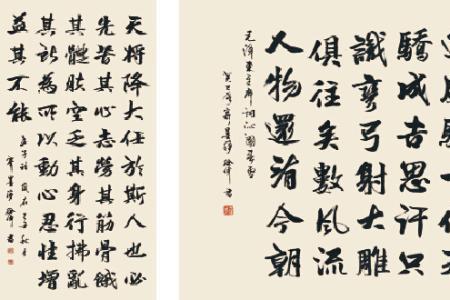 天將降大任於斯人也必
先苦其心志勞其筋骨餓
其體肤空乏其身行拂亂
其所為所以動心忍性增
益其不能
孟子語
驕成吉思汗只
識彎弓射大雕
俱往矣數風流
人物還看今朝
毛澤東主席詞沁園春雪